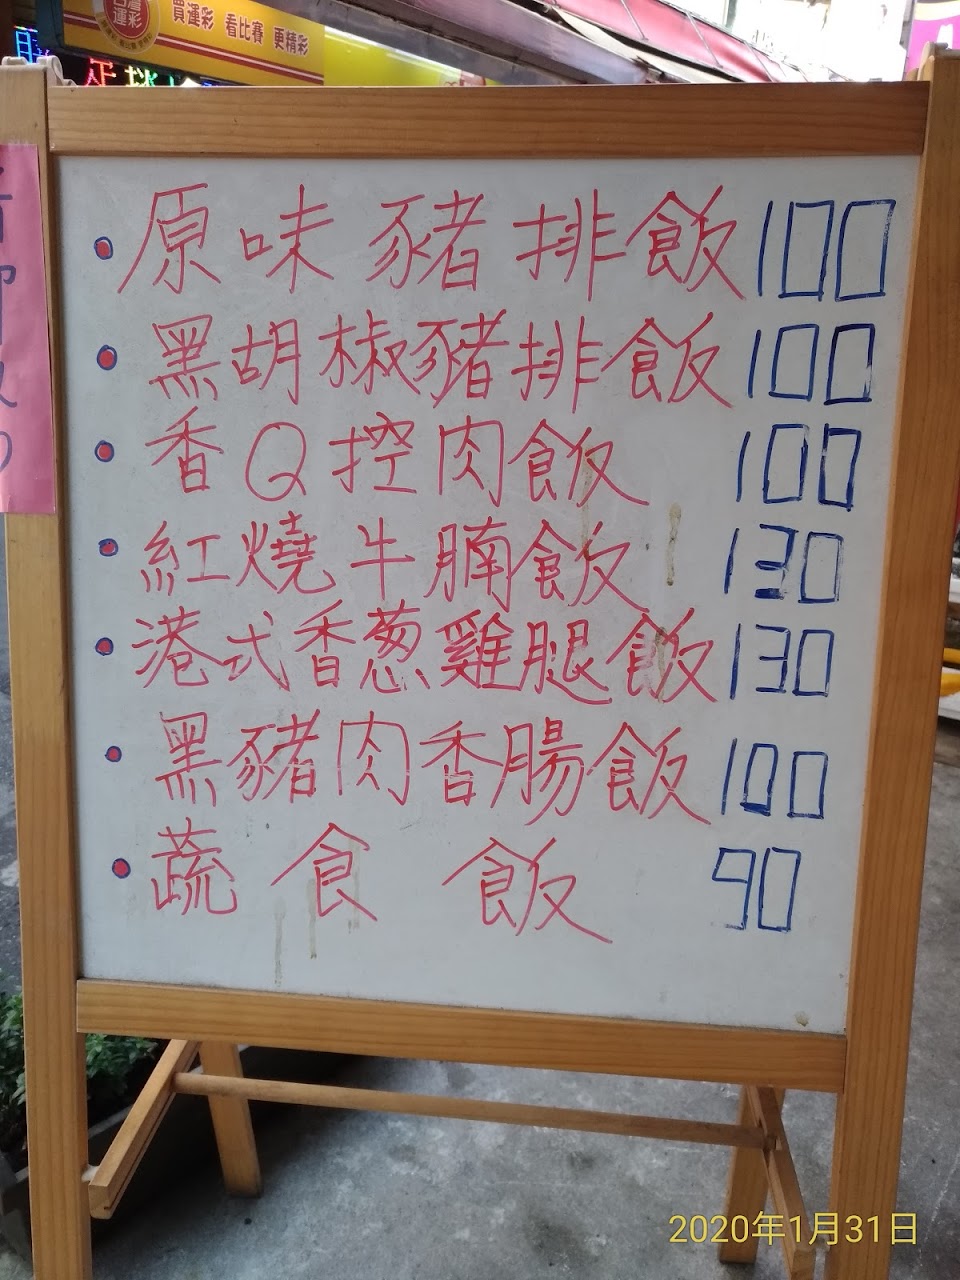 買運彩 看比賽 更精彩
原味豬排飯100
黑胡椒豬排飯100
香Q控肉飯100
紅燒牛腩飯130
港式香葱雞腿飯130
黑豬肉香腸飯100
蔬食飯 90
2020年1月31日